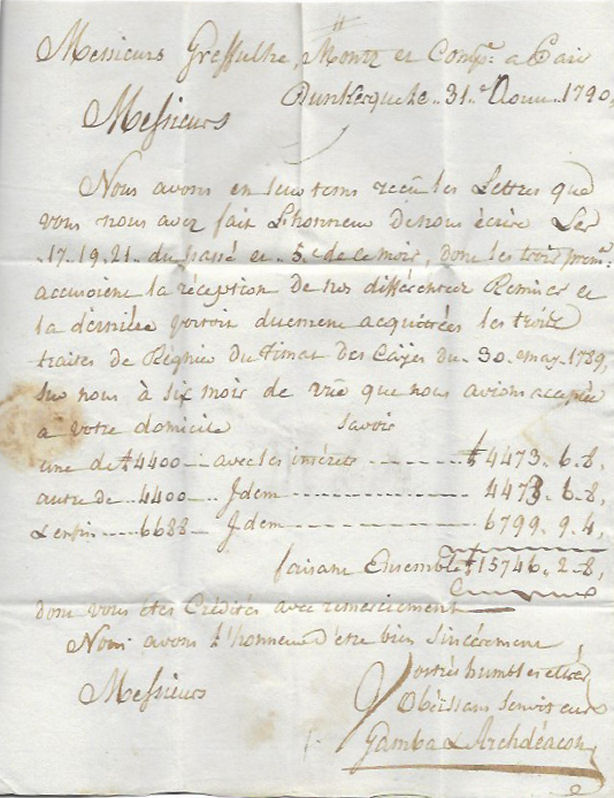 Messieurs Greffulhe, Montz et Comp.e a Paris
Dunkerque le .. 31. Aoust .. 1790,
Messieurs
Nous avons en leur tems reçu les Lettres que
vous nous avez fait L'honneur de nous écrire Les
.. 17. 19. 21. du passé et .. 5. de ce mois, dont les trois prem.es
accusoient la réception de nos différentes Remises et
la dernière portoit duement acquittées les trois
traites de Régnier du Timat des Cayes du .. 30. may .. 1789,
sur nous à six mois de vüe que nous avions acceptées
à votre domicile savoir
une de ₶ 4400 — avec les intérêts - - - - - - ₶ 4473. 6. 8,
autre de .. 4400 — .. Idem - - - - - - - - - 4473. 6. 8,
& enfin - - - 6688 — Idem - - - - - - - - - 6799. 9. 4,
faisant Ensemble ₶ 15746. 2. 8,
dont vous êtes Crédités avec remerciement
Nous avons l'honneur d'être bien Sincèrement
Messieurs
Vos très humbles et très
Obéissans Serviteurs
Gamba & Archdéacon